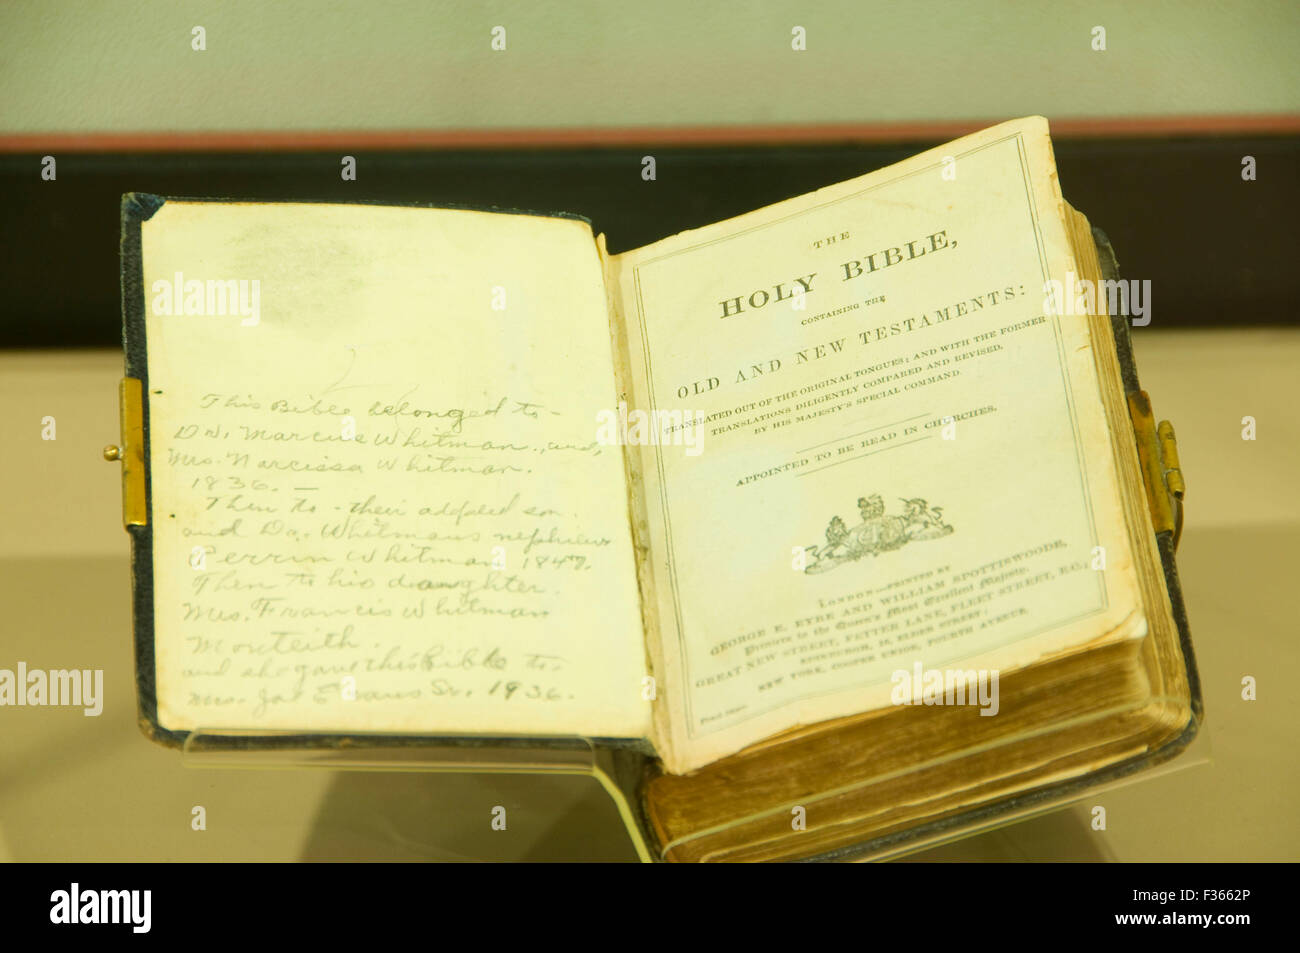 This Bible belonged to -
Dr. Marcus Whitman., and,
Mrs. Narcissa Whitman.
1836. -
Then to - their adopted son.
and Dr. Whitmans nephew
Perrin Whitman 1847.
Then to his daughter.
Mrs. Francis Whitman
Monteith.
and she gave this Bible to -
Mrs. Joe Evans Sr. 1936.
THE
HOLY BIBLE,
CONTAINING THE
OLD AND NEW TESTAMENTS:
TRANSLATED OUT OF THE ORIGINAL TONGUES; AND WITH THE FORMER
TRANSLATIONS DILIGENTLY COMPARED AND REVISED,
BY HIS MAJESTY'S SPECIAL COMMAND.
APPOINTED TO BE READ IN CHURCHES.
LONDON:—PRINTED BY
GEORGE E. EYRE AND WILLIAM SPOTTISWOODE,
Printers to the Queen's Most Excellent Majesty.
GREAT NEW STREET, FETTER LANE, FLEET STREET, E.C.;
EDINBURGH, 16, ELDER STREET;
NEW YORK, COOPER UNION, FOURTH AVENUE.
alamy
alamy
Image ID: F3662P
www.alamy.com